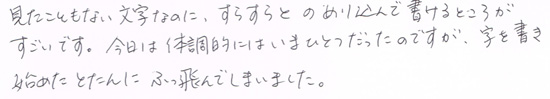 見たこともない文字なのに、すらすらと のめり込んで書けるところが
すごいです。今日は体調的にはいまひとつだったのですが、字を書き
始めたとたんに ふっ飛んでしまいました。